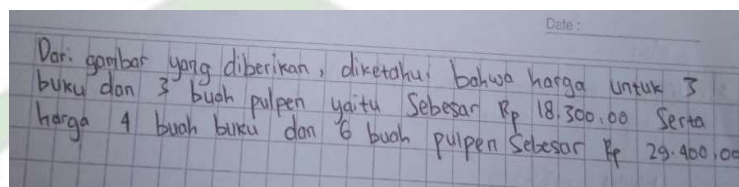 Date :
Dari gambar yang diberikan, diketahui bahwa harga untuk 3
buku dan 3 buah pulpen yaitu Sebesar Rp 18.300,00 Serta
harga 4 buah buku dan 6 buah pulpen Sebesar Rp 29.400,00